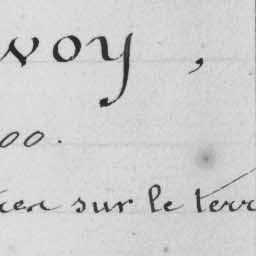 voy,
00.
sur le terr